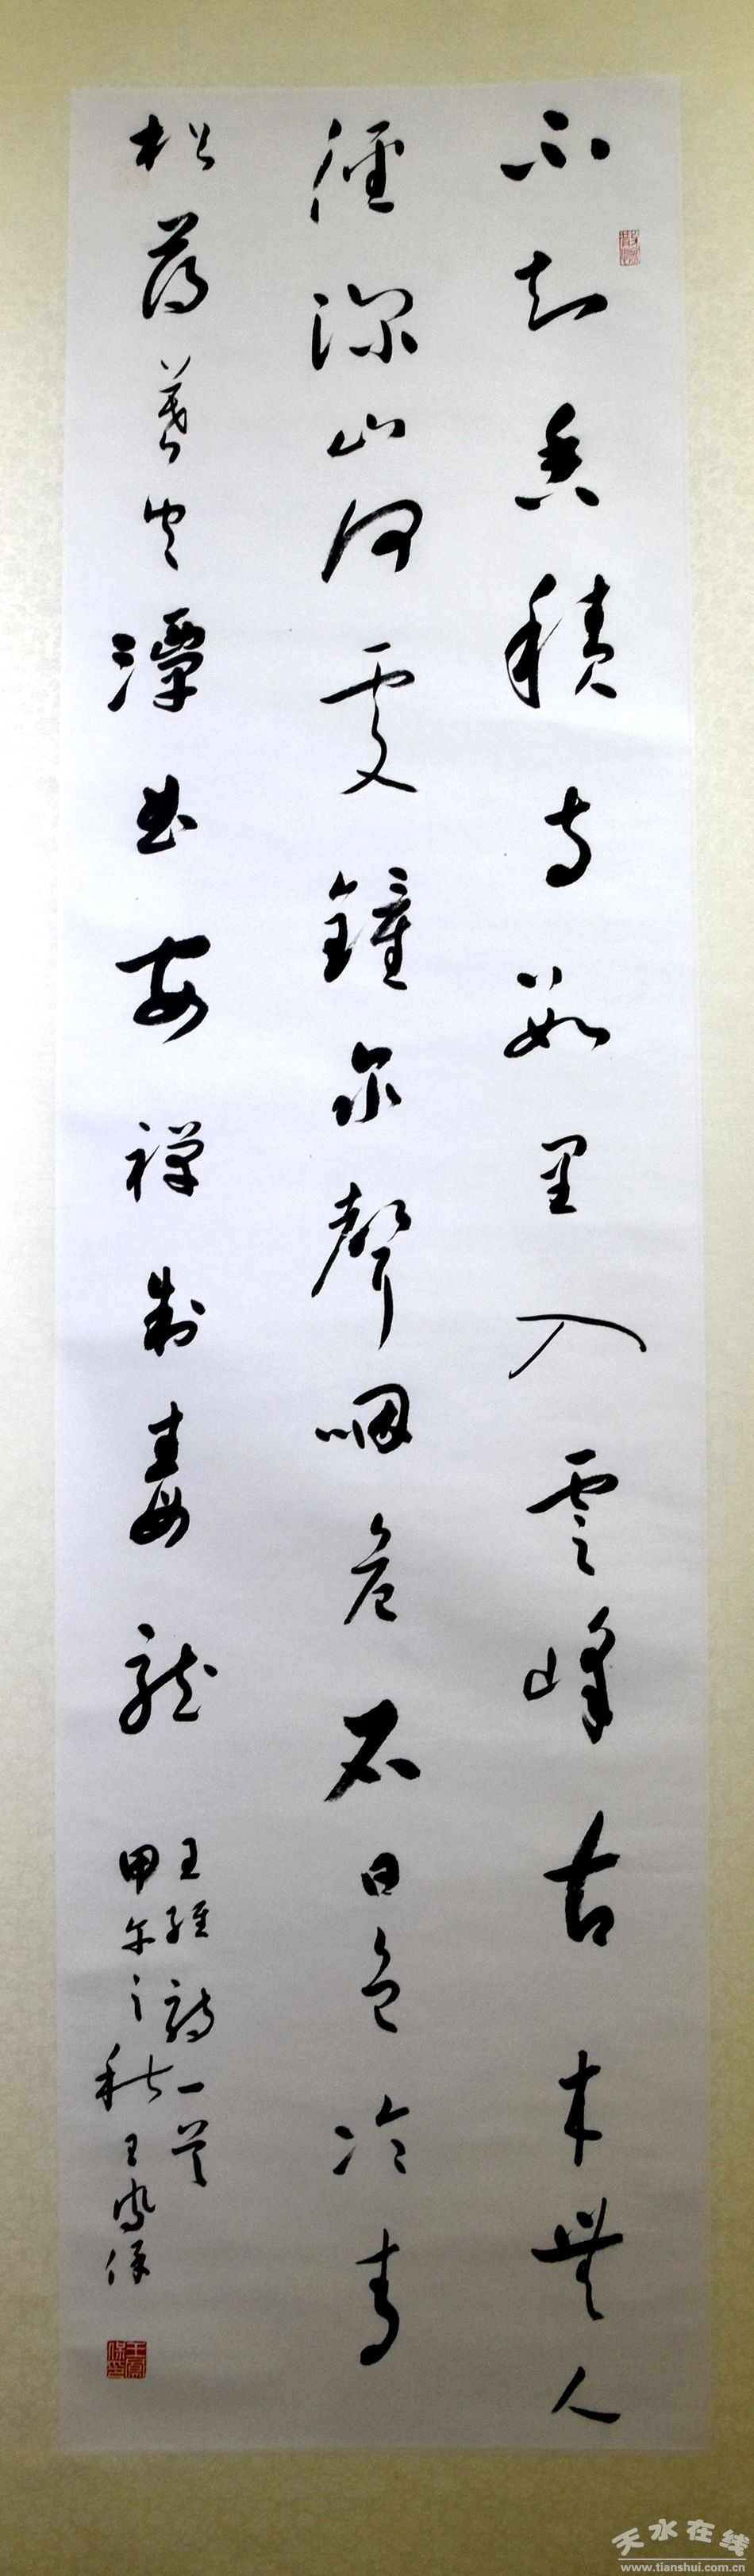 不知香積寺數里入雲峰古木無人
徑深山何處鐘泉聲咽危石日色冷青
松薄暮空潭曲安禪制毒龍
王維詩一首
甲午之秋王保
天水在线
www.tianshui.com.cn